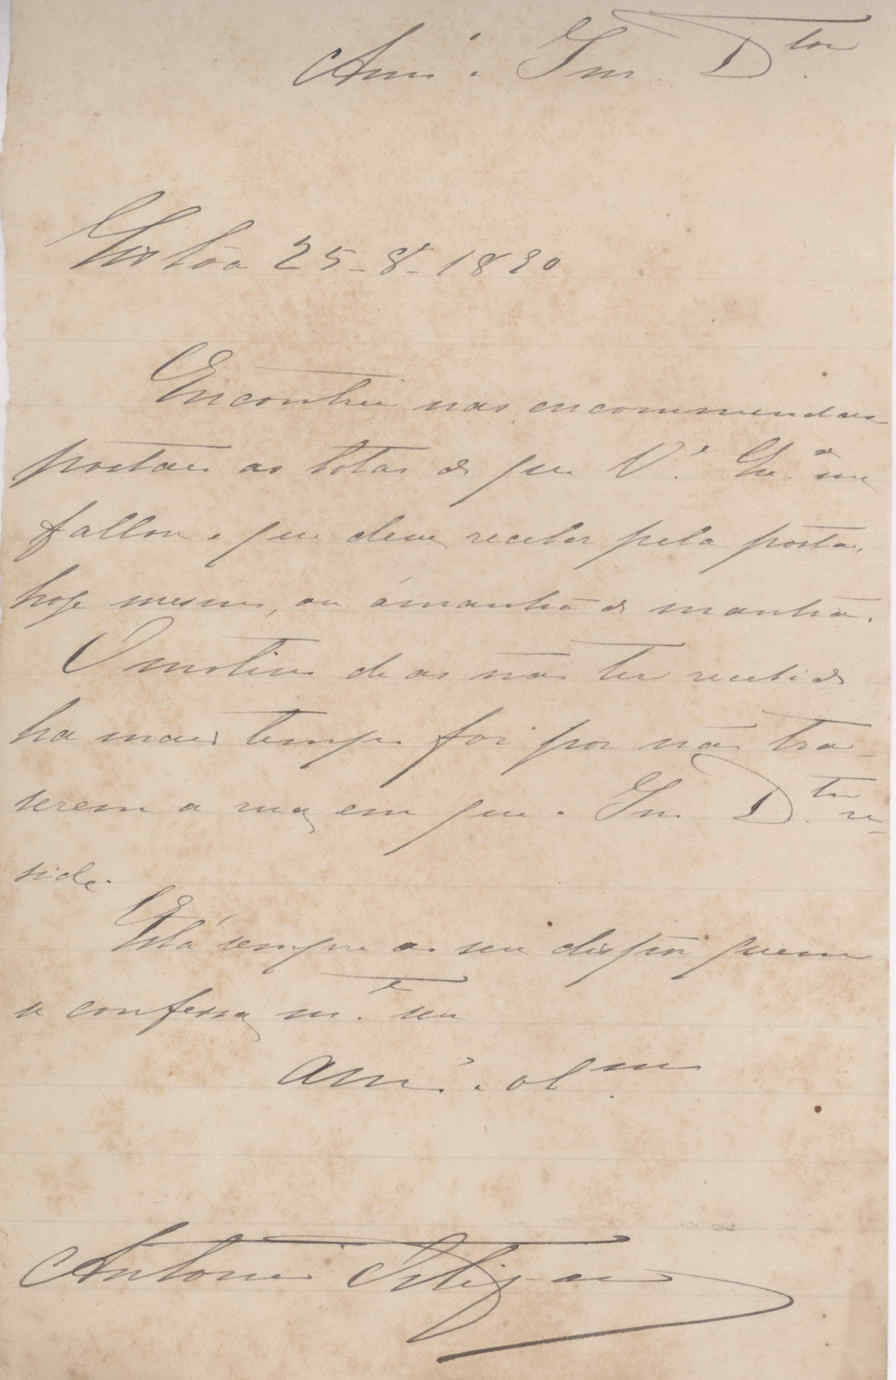 Amº. e Snr. Dtor
Lisboa 25-8-1890
Encontrei nas encommendas
postaes as botas de que V.ª Ex.ª me
fallou e que deve receber pela posta,
hoje mesmo, ou ámanhã de manhã.
O motivo de as não ter recebido
ha mais tempo foi por não tra-
serem a rua em que o Snr. Dtor re-
side.
Está sempre ao seu dispôr quem
se confessa m.to seu
Am.º e ob.mo
Antonio